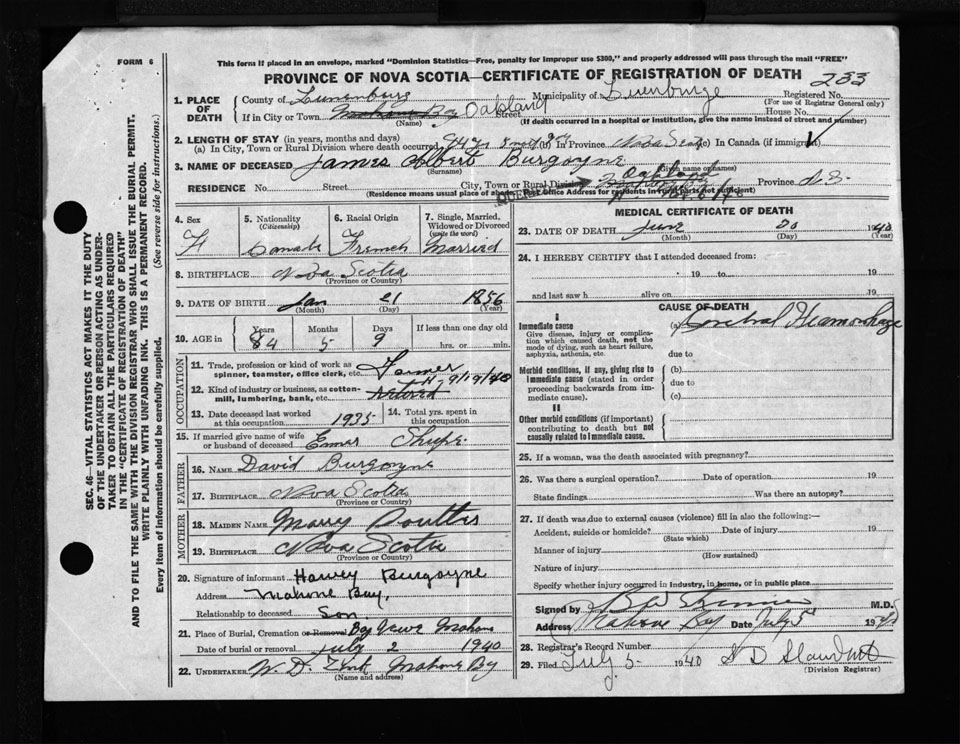 FORM 6
This form if placed in an envelope, marked "Dominion Statistics—Free, penalty for improper use $300," and properly addressed will pass through the mail "FREE"
PROVINCE OF NOVA SCOTIA—CERTIFICATE OF REGISTRATION OF DEATH
233
1. PLACE OF DEATH
County of Lunenburg Municipality of Lunenburg Registered No.
(For use of Registrar General only)
If in City or Town Mahone Bay Oakland Street House No.
(Name) (If death occurred in a hospital or institution, give the name instead of street and number)
2. LENGTH OF STAY (in years, months and days)
(a) In City, Town or Rural Division where death occurred 84 yr 5 mo (b) In Province Nova Scotia (c) In Canada (if immigrant)
3. NAME OF DECEASED James Albert Burgoyne
(Surname) (Given name or names)
RESIDENCE No. Street City, Town or Rural Division Oakland Province N.S.
(Residence means usual place of abode. Post Office Address for residents in rural parts not sufficient)
4. Sex
5. Nationality (Citizenship) Canada
6. Racial Origin French
7. Single, Married, Widowed or Divorced (write the word) Married
8. BIRTHPLACE Nova Scotia
(Province or Country)
9. DATE OF BIRTH Jan 21 1856
(Month) (Day) (Year)
10. AGE in Years 84 Months 5 Days 9 If less than one day old hrs. or min.
OCCUPATION
11. Trade, profession or kind of work as spinner, teamster, office clerk, etc. Farmer
12. Kind of industry or business, as cotton-mill, lumbering, bank, etc. retired
13. Date deceased last worked at this occupation 1935
14. Total yrs. spent in this occupation
15. If married give name of wife or husband of deceased Emma Shupe
FATHER
16. NAME David Burgoyne
17. BIRTHPLACE Nova Scotia
(Province or Country)
MOTHER
18. MAIDEN NAME Mary
19. BIRTHPLACE Nova Scotia
(Province or Country)
20. Signature of informant Harvey Burgoyne
Address Mahone Bay,
Relationship to deceased Son
21. Place of Burial, Cremation or Removal Bay View Mahone
Date of burial or removal July 2 1940
22. UNDERTAKER W. D. Zink Mahone By
(Name and address)
MEDICAL CERTIFICATE OF DEATH
23. DATE OF DEATH June 30 1940
(Month) (Day) (Year)
24. I HEREBY CERTIFY that I attended deceased from:
19 to 19
and last saw h alive on 19
CAUSE OF DEATH
I
Immediate cause
Give disease, injury or complication which caused death, not the mode of dying, such as heart failure, asphyxia, asthenia, etc.
(a) Cerebral Heamorhage
due to
Morbid conditions, if any, giving rise to immediate cause (stated in order proceeding backwards from immediate cause).
(b)
due to
(c)
II
Other morbid conditions (if important) contributing to death but not causally related to immediate cause.
25. If a woman, was the death associated with pregnancy?
26. Was there a surgical operation? Date of operation 19
State findings Was there an autopsy?
27. If death was due to external causes (violence) fill in also the following:—
Accident, suicide or homicide? Date of injury 19
(State which)
Manner of injury
(How sustained)
Nature of injury
Specify whether injury occurred in industry, in home, or in public place
Signed by M.D.
Address Mahone Bay Date July 5 1940
28. Registrar's Record Number
29. Filed July 5 1940
(Division Registrar)
SEC. 46—VITAL STATISTICS ACT MAKES IT THE DUTY
OF THE UNDERTAKER OR PERSON ACTING AS UNDER-
TAKER TO OBTAIN ALL THE PARTICULARS REQUIRED
IN THE "CERTIFICATE OF REGISTRATION OF DEATH"
AND TO FILE THE SAME WITH THE DIVISION REGISTRAR WHO SHALL ISSUE THE BURIAL PERMIT.
WRITE PLAINLY WITH UNFADING INK. THIS IS A PERMANENT RECORD.
Every item of information should be carefully supplied. (See reverse side for instructions.)